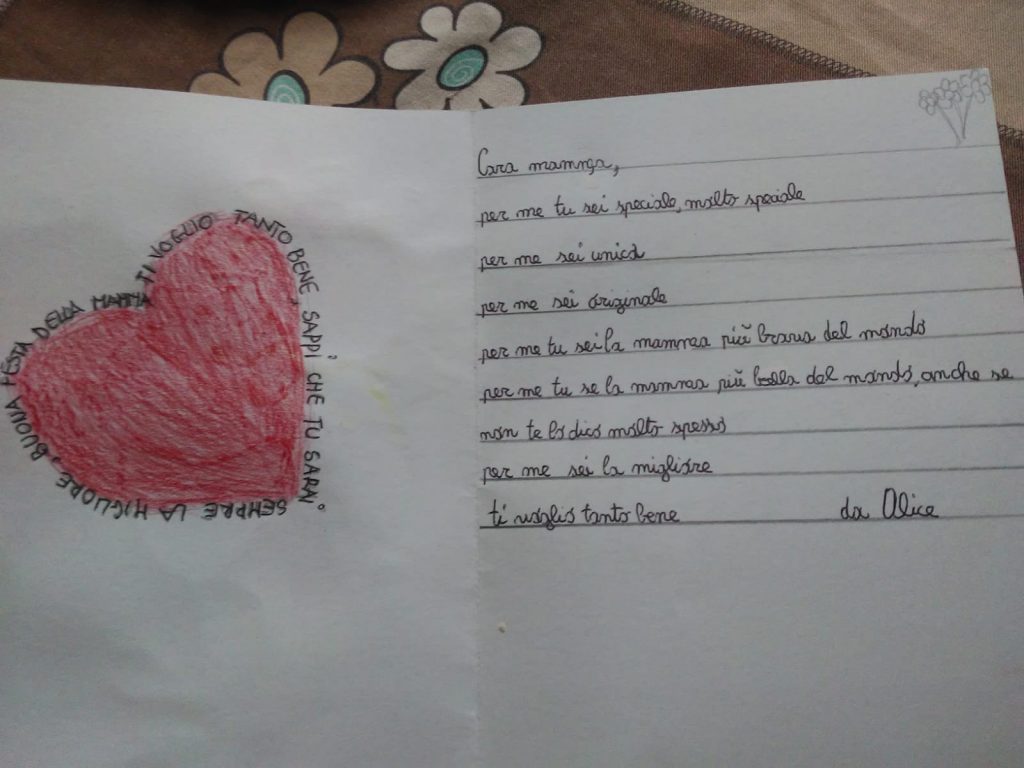 TI VOGLIO TANTO BENE, SAPPI CHE TU SARAI SEMPRE LA MIGLIORE, BUONA FESTA DELLA MAMMA
Cara mamma,
per me tu sei speciale, molto speciale
per me sei unica
per me sei originale
per me tu sei la mamma più brava del mondo
per me tu se la mamma più bella del mondo, anche se
non te lo dico molto spesso
per me sei la migliore
ti voglio tanto bene da Alice